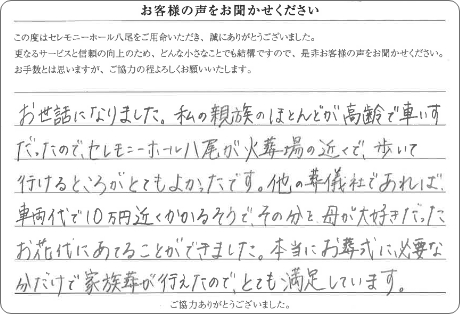 お客様の声をお聞かせください
この度はセレモニーホール八尾をご用命いただき、誠にありがとうございました。
更なるサービスと信頼の向上のため、どんな小さなことでも結構ですので、是非お客様の声をお聞かせください。
お手数とは思いますが、ご協力の程よろしくお願いいたします。
お世話になりました。私の親族のほとんどが高齢で車いす
だったので、セレモニーホール八尾が火葬場の近くで、歩いて
行けるところがとてもよかったです。他の葬儀社であれば、
車両代で10万円近くかかるそうで、その分を、母が大好きだった
お花代にあてることができました。本当にお葬式に必要な
分だけで家族葬が行えたので、とても満足しています。
ご協力ありがとうございました。